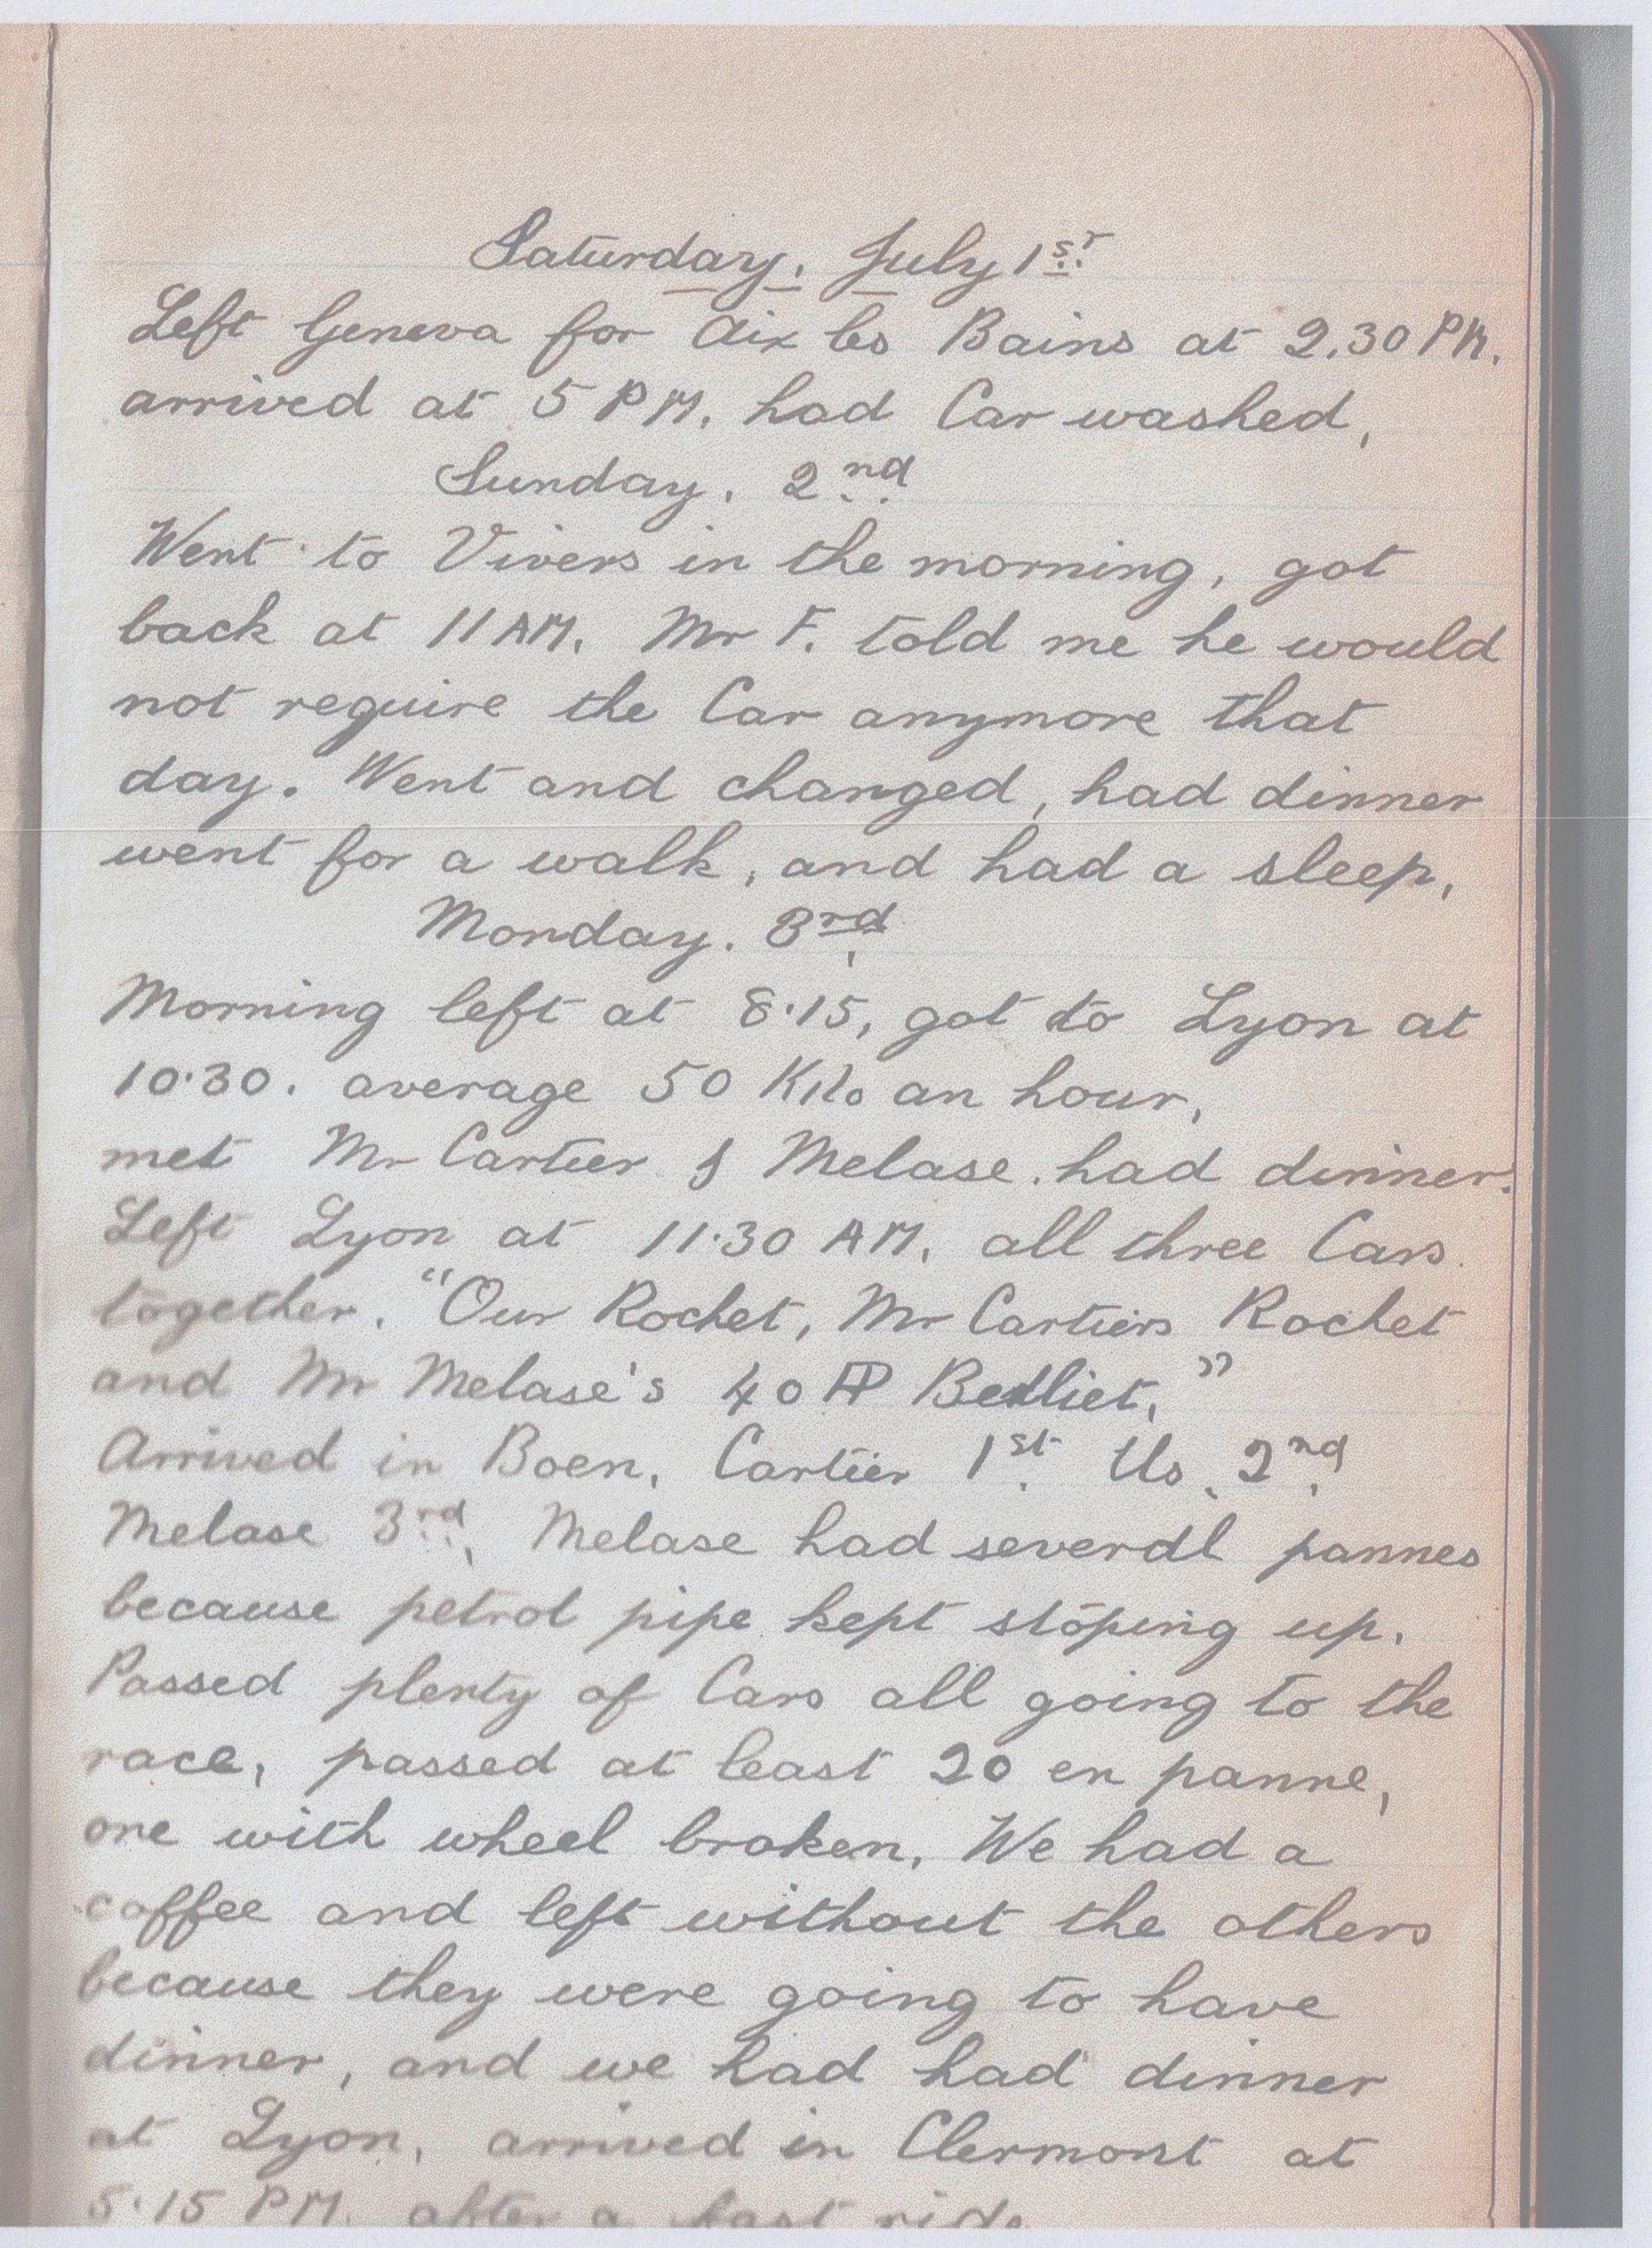 Saturday, July 1st
Left Geneva for Aix les Bains at 2.30 PM.
arrived at 5 PM. had Car washed,
Sunday, 2nd
Went to Vivers in the morning, got
back at 11 AM. Mr F. told me he would
not require the Car anymore that
day. Went and changed, had dinner
went for a walk, and had a sleep,
Monday. 3rd
Morning left at 8.15, got to Lyon at
10.30. average 50 Kilo an hour,
met Mr Cartier & Melase. had dinner.
Left Lyon at 11.30 AM. all three Cars
together. "Our Rochet, Mr Cartiers Rochet
and Mr Melase's 40 HP Bedliet,"
Arrived in Boen, Cartier 1st. Us, 2nd,
Melase 3rd, Melase had several pannes
because petrol pipe kept stoping up.
Passed plenty of Cars all going to the
race, passed at least 20 en panne,
one with wheel broken, We had a
coffee and left without the others
because they were going to have
dinner, and we had had dinner
at Lyon, arrived in Clermont at
5.15 PM. after a fast ride